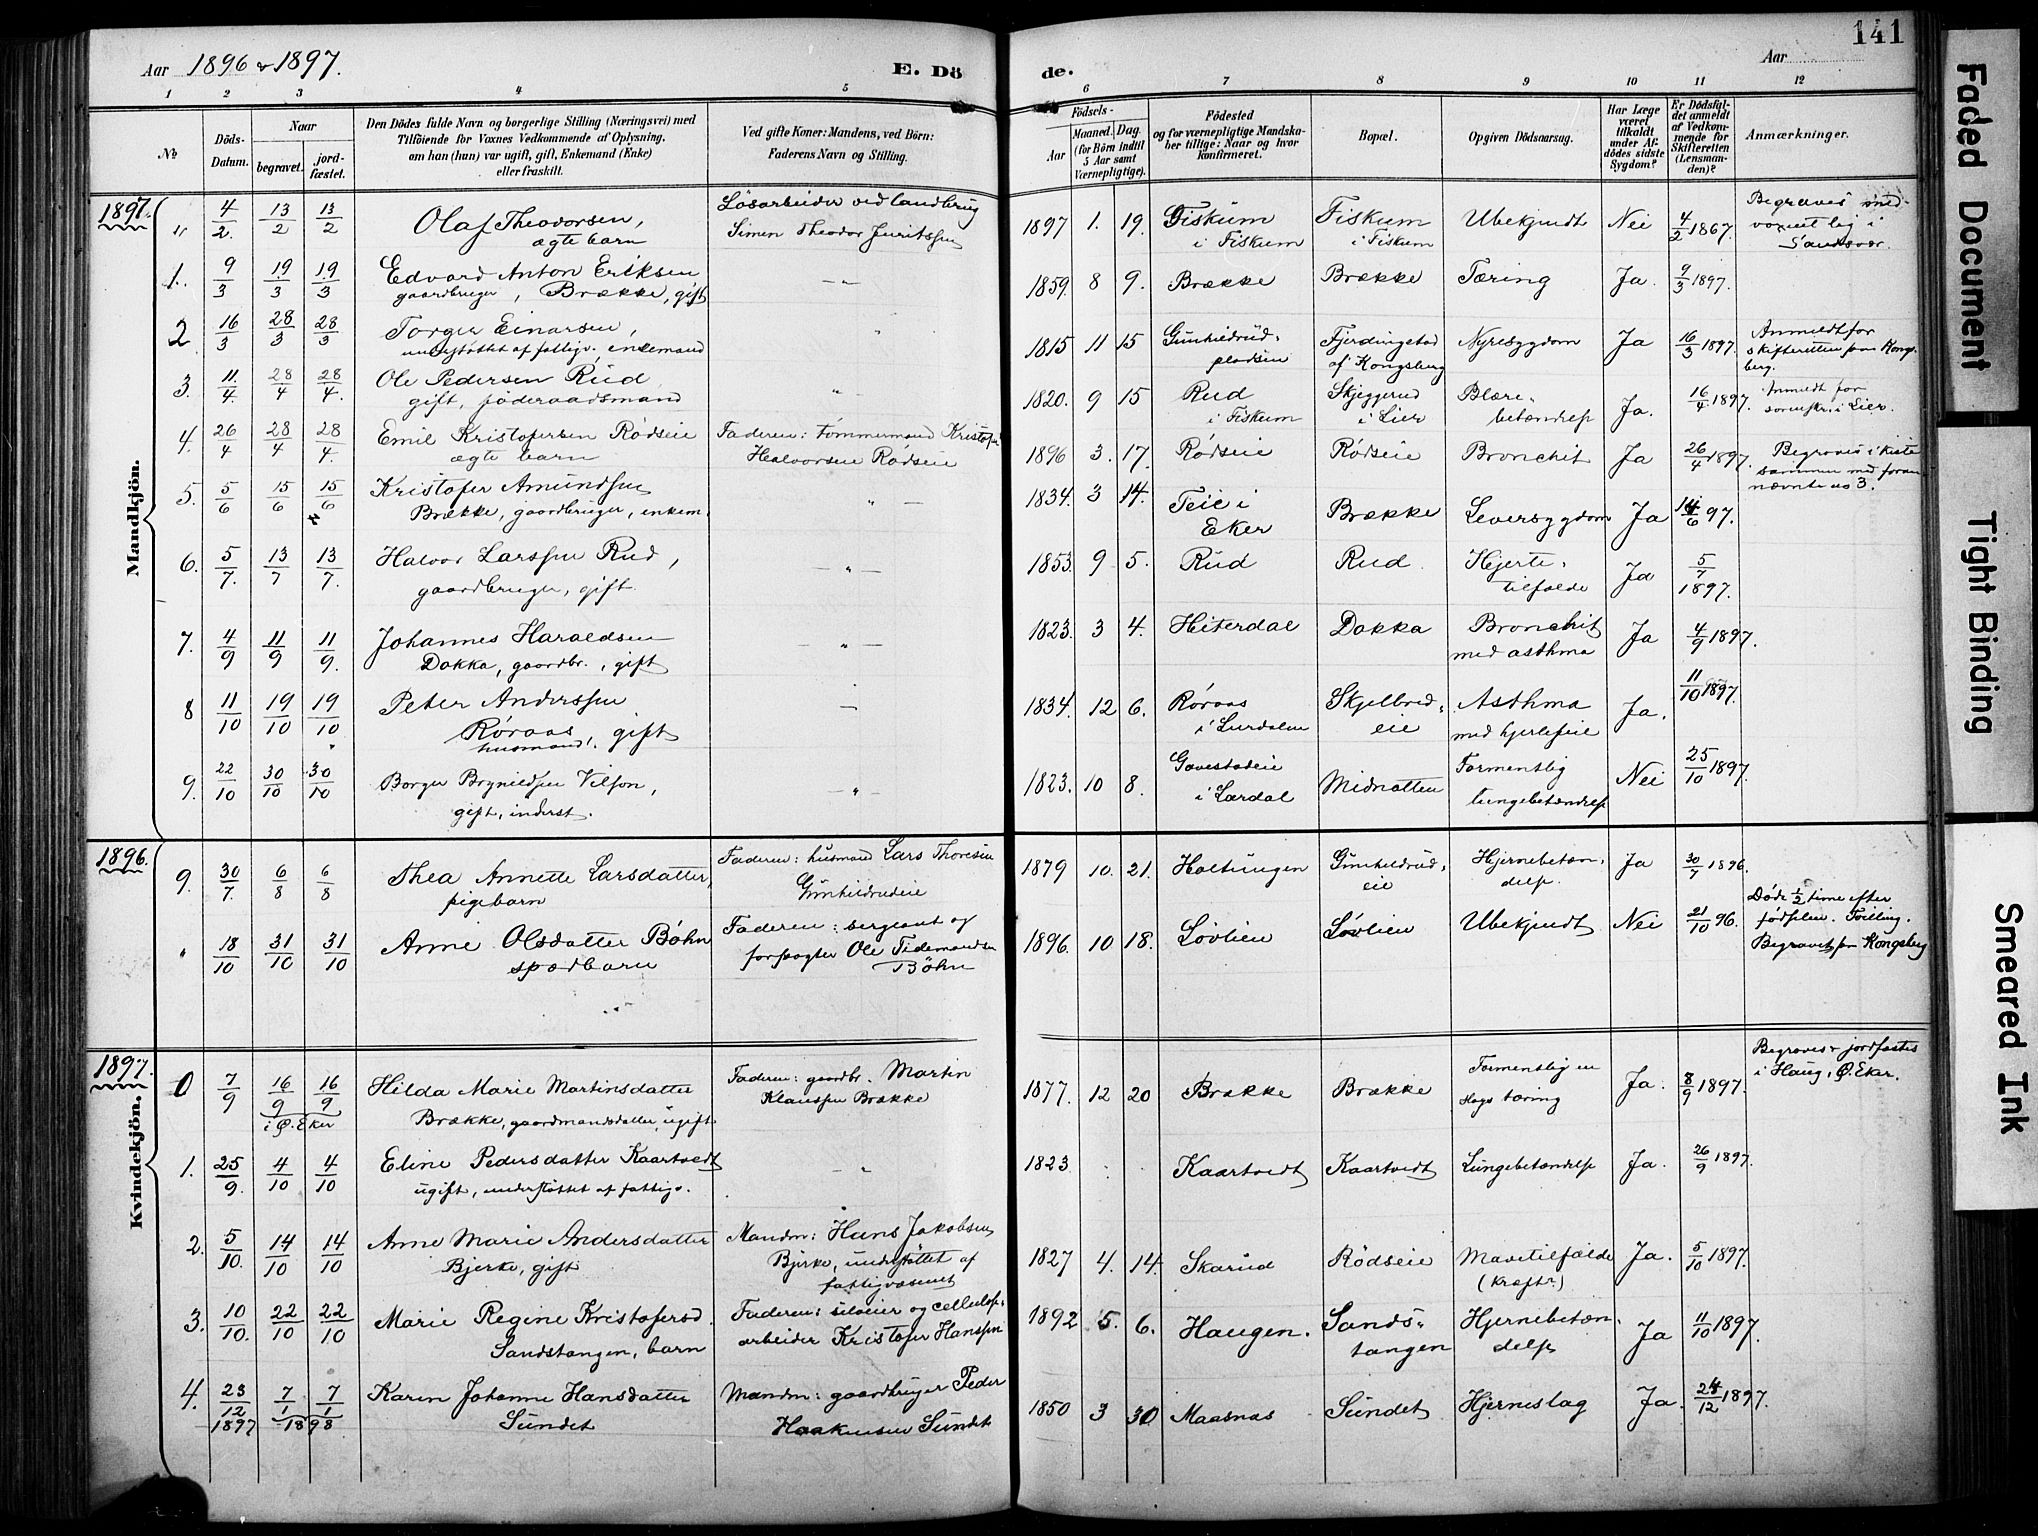 Aar 1896 & 1897.
E. Döde.
Aar
141
1 2 3 4 5 6 7 8 9 10 11 12
No
Döds-Datum.
Naar
begravet.
jordfæstet.
Den Dödes fulde Navn og borgerlige Stilling (Næringsvei) med
Tilföiende for Voxnes Vedkommende af Oplysning,
om han (hun) var ugift, gift, Enkemand (Enke)
eller fraskilt.
Ved gifte Koner: Mandens, ved Börn:
Faderens Navn og Stilling.
Födsels-
Aar
Maaned. Dag.
(for Börn indtil
5 Aar samt
Værnepligtige).
Födested
og for værnepligtige Mandskaber tillige: Naar og hvor
konfirmeret.
Bopæl.
Opgiven Dödsaarsag.
Har Læge
været
tilkaldt
under Afdödes sidste
Sygdom?
Er Dödsfaldet anmeldt
af Vedkommende for
Skifteretten
(Lensmanden)?
Anmærkninger.
Mandkjön.
1897.
" 4/2. 13/2 13/2 Olaf Theodorsen, ægte barn
Løsarbeider ved landbrug
Simen Theodor
1897 1. 19. Fiskum i Fiskum
Fiskum i Fiskum
Ubekjendt Nei 4/2 1867.
Begraves med voxent lig i Sandsvær.
1. 9/3 19/3 19/3 Edvard Anton Eriksen
gaardbruger, Brække, gift
1859. 8 9. Brække Brække Tæring Ja. 9/3 1897.
2 16/3 28/3 28/3 Torger Einarsen,
understøttet af fattigv. enkemand
1815 11 15 Gunhildrudpladsen
Fjerdingstad af Kongsberg
Nyresygdom Ja 16/3 1897.
Anmeldt for skifteretten paa Kongsberg.
3. 11./4. 28/4 28/4. Ole Pedersen Rud,
gift, føderaadsmand
1820. 9 15 Rud i Fiskum
Skjeggerud i Lier
Blærebetændelse Ja. 16/4 1897.
Anmeldt for i Lier.
4. 26/4 28/4 28/4. Emil Kristofersen Rødseie
ægte barn
Faderen: tømmermand Kristofer
Halvorsen Rødseie
1896 3. 17. Rødseie Rødseie Bronchit Ja 26/4 1897.
Begraves i kiste sammen med forannævnte no 3.
5. 5/6 15/6 15/6 Kristofer Amundsen
Brække, gaardbruger, enkem.
1834. 3 14. Teie i Eker
Brække Leversygdom Ja /6 97.
6. 5/7. 13/7 13/7. Halvor Larssen Rud,
gaardbruger, gift
1853. 9 5. Rud Rud. Hjertetilfælde Ja 5/7 1897.
7. 4/9 11/9 11/9. Johannes Haraldsen
Dokka, gaardbr., gift
1823. 3 4. Hiterdal Dokka Bronchit
med asthma Ja 4/9 1897.
8 11/10 19/10 19/10 Peter Anderssen
Røraas, gift
husmand
1834. 12 6. Røraas i Lurdalen
Skjelbredeie
Asthma
med hjertefeil Ja. 11/10 1897.
9. 22/10 30/10 30/10 Borger Brynildsen Vilson,
gift, inderst.
1823. 10 8. Govestadeie i Lardal
Midnatten
Formentlig
lungebetændelse Nei 25/10 1897.
Kvindekjön.
1896.
9. 30/7. 6/8 6/8 Thea Annette Larsdatter,
pigebarn
Faderen: husmand Lars Thoresen
Gunhildrudeie
1879 10. 21. Holtungen
Gunhildrudeie
Hjernebetændelse. Ja 30/7 1896.
" 18/10 31/10 31/10 Anne Olsdatter Bøhn
spædbarn
Faderen: sergeant og
forpagter Ole Tidemandsen
Bøhn
1896. 10 18. Løvlien Løvlien Ubekjendt Nei 21/10 96.
Døde 1/2 time efter
fødselen. Tvilling.
Begravet paa Kongsberg
1897.
0 7/9 16/9 16/9 i Ø. Eker
Hilda Marie Martinsdatter
Brække, gaardmandsdatter, ugift
Faderen: gaardbr. Martin
Klaussen Brække
1877. 12 20 Brække Brække
Formentlig en
slags tæring Ja. 8/9 1897.
Begraves & jordfæstes
i Haug, Ø. Eker.
1. 25/9. 4/10 4/10 Eline Pedersdatter Kaartvedt
ugift, understøttet af fattigv.
1823 Kaartvedt Kaartvedt Lungebetændelse Ja. 26/9 1897.
2. 5/10. 14/10 14/10 Anne Marie Andersdatter
Bjerke, gift
Manden: Hans Jakobsen
Bjerke, understøttet af
fattigvæsenet
1827 4. 14. Skarud Rødseie Mavetilfælde
(kræft?) Ja. 5/10 1897.
3. 10/10. 22/10 22/10 Marie Regine Kristofersd.
Sandstangen, barn
Faderen: seleier og cellulosearbeider Kristofer Hanssen
1892 5. 6. Haugen. Sandstangen
Hjernebetændelse Ja 11/10 1897.
4. 23/12 1897 7/1 7/1 1898
Karen Johanne Hansdatter
Sundet
Manden: gaardbruger Peder
Haakensen Sundet
1850 3 30 Maasnas Sundet Hjerneslag Ja. 24/12 1897.
Faded Document
Tight Binding
Smeared Ink